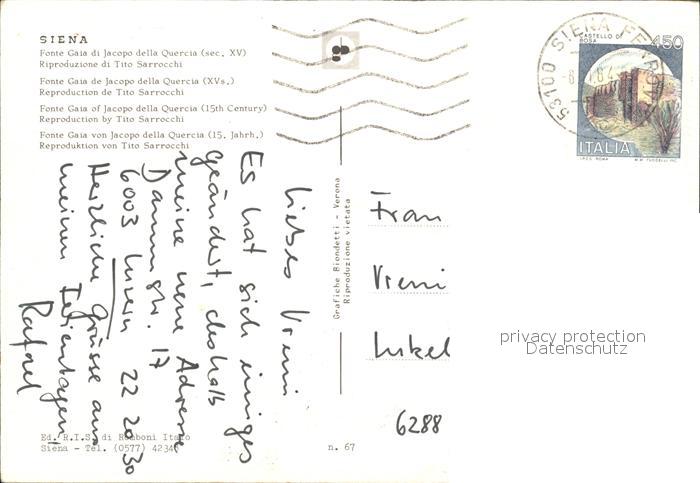 SIENA
Fonte Gaia di Jacopo della Quercia (sec. XV)
Riproduzione di Tito Sarrocchi
Fonte Gaia de Jacopo della Quercia (XVs.)
Reproduction de Tito Sarrocchi
Fonte Gaia of Jacopo della Quercia (15th Century)
Reproduction by Tito Sarrocchi
Fonte Gaia von Jacopo della Quercia (15. Jahrh.)
Reproduktion von Tito Sarrocchi
Liebes Vreni
Es hat sich einiges
geändert, deshalb
meine neue Adresse
Dammstr. 17
6003 Luzern 22 20 30
Herzliche Grüsse aus
meinen Ferientagen!
Rafael
Ed. R.I.S. di Romboni Italo
Siena - Tel. (0577) 42340
n. 67
Grafiche Biondetti - Verona
Riproduzione vietata
53100 SIENA FERROVIA
CASTELLO DI
ROSA
450
ITALIA
I.P.Z.S. ROMA
Frau
Vreni
6288
privacy protection
Datenschutz